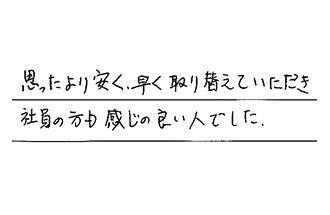 思ったより安く、早く取り替えていただき
社員の方も感じの良い人でした.